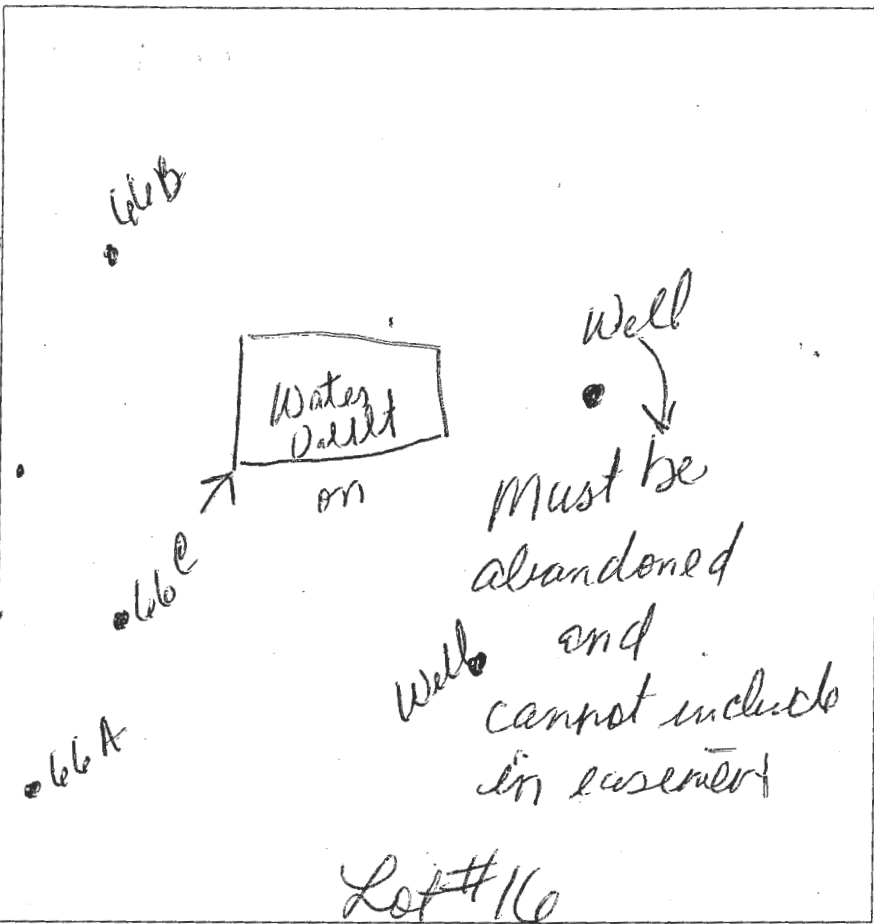 66B
Well
Water
on
Must be
abandoned
and
cannot include
in easement
66C
Well
66A
Lot #16